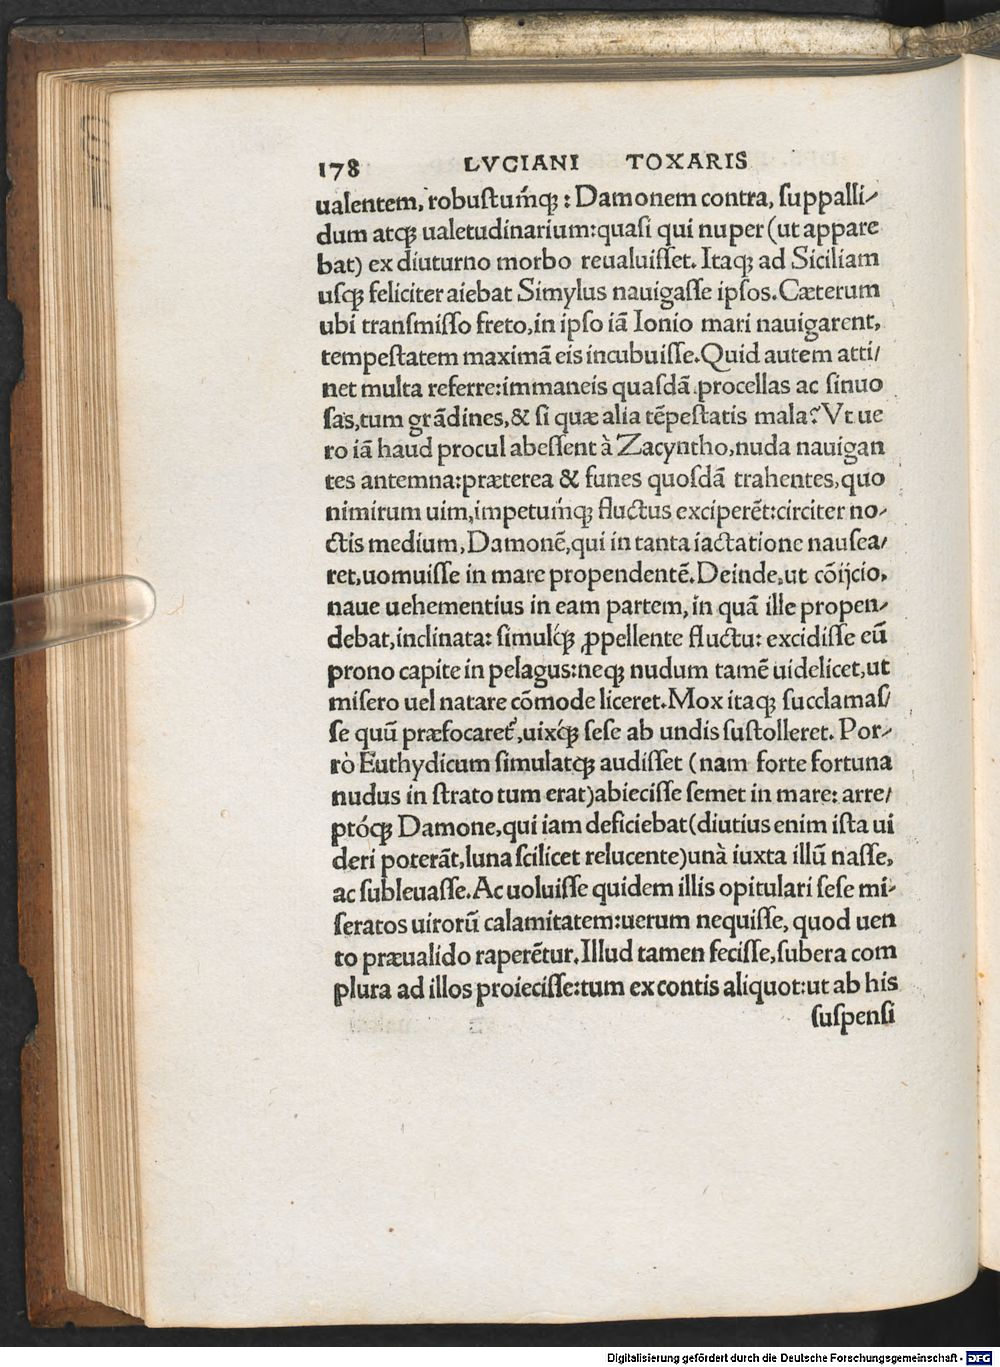 178 LVCIANI TOXARIS
ualentem, robustuḿq; : Damonem contra, suppalli-
dum atq; ualetudinarium: quasi qui nuper (ut appare
bat) ex diuturno morbo reualuisset. Itaq; ad Siciliam
usq; feliciter aiebat Simylus nauigasse ipsos. Cæterum
ubi transmisso freto, in ipso iã Ionio mari nauigarent,
tempestatem maximã eis incubuisse. Quid autem atti/
net multa referre: immaneis quasdã procellas ac sinuo
sas, tum grãdines, & si quæ alia tẽpestatis mala? Vt ue
ro iã haud procul abessent à Zacyntho, nuda nauigan
tes antemna: præterea & funes quosdã trahentes, quo
nimirum uim, impetuḿq; fluctus exciperẽt: circiter no-
ctis medium, Damonẽ, qui in tanta iactatione nausea/
ret, uomuisse in mare propendentẽ. Deinde, ut cõijcio,
naue uehementius in eam partem, in quã ille propen-
debat, inclinata: simulq́; ꝓpellente fluctu: excidisse eũ
prono capite in pelagus: neq; nudum tamẽ uidelicet, ut
misero uel natare cõmode liceret. Mox itaq; succlamas/
se quũ præfocaret᷑, uixq́; sese ab undis sustolleret. Por-
rò Euthydicum simulatq; audisset (nam forte fortuna
nudus in strato tum erat) abiecisse semet in mare: arre/
ptóq; Damone, qui iam deficiebat (diutius enim ista ui
deri poterãt, luna scilicet relucente) unà iuxta illũ nasse,
ac subleuasse. Ac uoluisse quidem illis opitulari sese mi-
seratos uirorũ calamitatem: uerum nequisse, quod uen
to præualido raperẽtur. Illud tamen fecisse, subera com
plura ad illos proiecisse: tum ex contis aliquot: ut ab his
suspensi
Digitalisierung gefördert durch die Deutsche Forschungsgemeinschaft - DFG